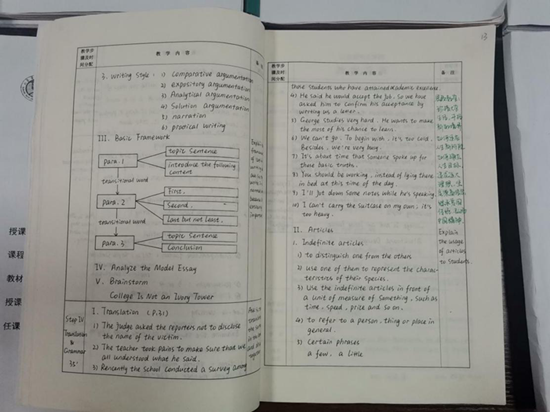 教学内容
3. Writing Style: 1) Comparative argumentation
2) expository argumentation
3) Analytical argumentation
4) Solution argumentation
5) narration
6) practical writing
III. Basic Framework
para. 1
topic Sentence
introduce the following
content
transitional word
para. 2
First,
Second,
Last but not least,
transitional word
para. 3
topic Sentence
Conclusion
IV. Analyze the Model Essay
V. Brainstorm
College Is Not an Ivory Tower
Step IV
Translation
&
Grammar
I. Translation
1) The Judge asked the reporters not to disclose
the name of the victim.
2) The teacher took pains to make sure that we
all understood what he said.
3) Recently the school conducted a survey among
教学内容
备注
those students who have
4) He said he would accept the job, so we have
asked him to confirm his acceptance by
writing us a letter.
5) George studies very hard. He wants to make
the most of his chance to learn.
6) We can't go. To begin with, it's too cold.
Besides, we're very busy.
7) It's about time that someone spoke up for
those basic truths.
8) You should be working, instead of lying there
in bed at this time of the day.
9) I'll jot down some notes while he's speaking.
10) I can't carry the suitcase on my own; it's
too heavy.
II. Articles
1. Indefinite articles
1) to distinguish one from the others
2) use one of them to represent the charac-
teristics of their species.
3) Use the indefinite articles in front of
a unit of measure of something, such as
time, speed, prize and so on.
4) to refer to a person, thing or place in
general.
5) Certain phrases
a few, a little
Explain
the usage
of articles
to Students.
授课
课程
教材
授课
任课